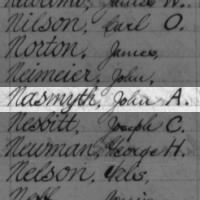 Nilson, Carl O.
Norton, James,
Neimeier, John,
Nasmyth, John A.
Nesbitt, Joseph C.
Newman, George H.
Nelson,